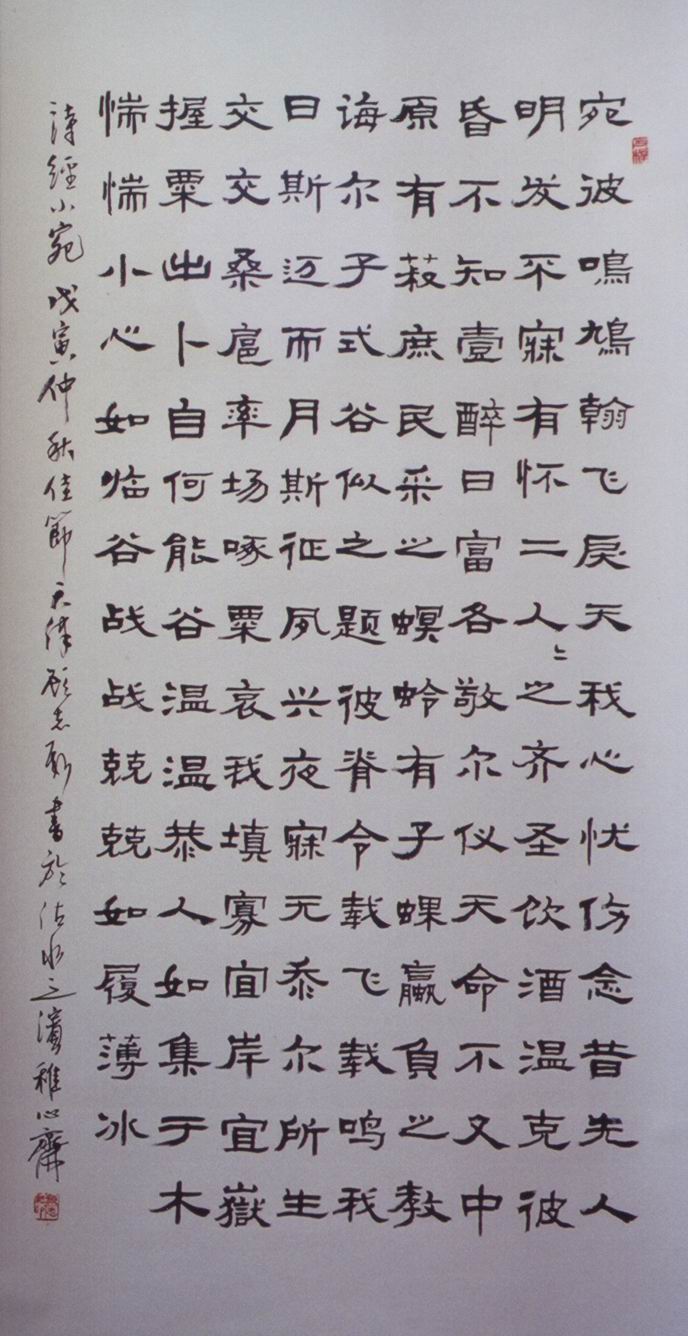 宛彼鳴鳩翰飞戾天我心忧伤念昔先人
明发不寐有怀二人〻之齐圣饮酒温克彼
昏不知壹醉日富各敬尔仪天命不又中
原有菽庶民采之螟蛉有子蜾蠃負之教
诲尔子式谷似之题彼脊令载飞载鸣我
日斯迈而月斯征夙兴夜寐无忝尔所生
交交桑扈率场啄粟哀我填寡宜岸宜嶽
握粟出卜自何能谷温温恭人如集于木
惴惴小心如临谷战战兢兢如履薄冰
诗經小宛 戊寅仲秋佳節天津顾志新書於沽水之濱稚心齋